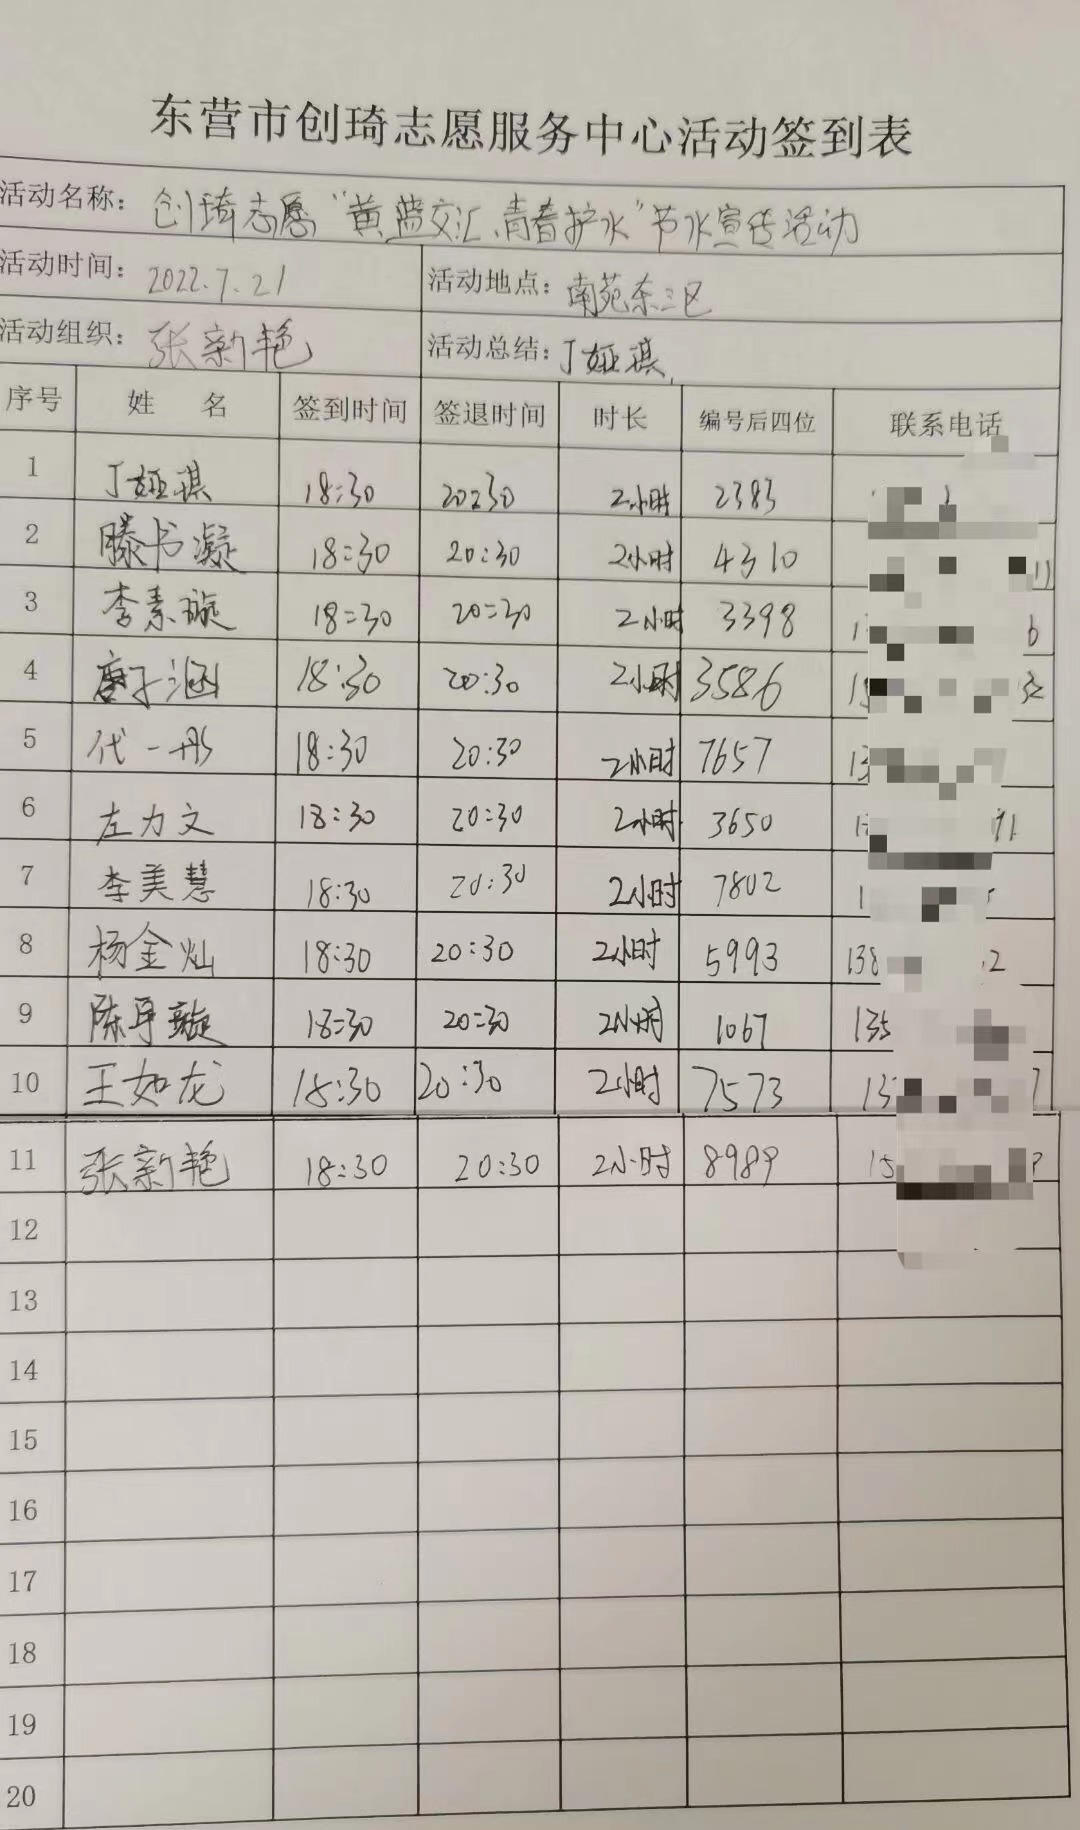 东营市创琦志愿服务中心活动签到表
活动名称：创琦志愿“黄蓝交汇、青春护水”节水宣传活动
活动时间：2022.7.21 活动地点：南苑东三区
活动组织：张新艳 活动总结：丁娅琪
序号 姓 名 签到时间 签退时间 时长 编号后四位 联系电话
1 丁娅琪 18:30 20:30 2小时 2383
2 滕书凝 18:30 20:30 2小时 4310
3 李素璇 18:30 20:30 2小时 3398
4 唐子涵 18:30 20:30 2小时 3586
5 代一彤 18:30 20:30 2小时 7657
6 左力文 18:30 20:30 2小时 3650
7 李美慧 18:30 20:30 2小时 7802
8 杨金灿 18:30 20:30 2小时 5993 138
9 陈 璇 18:30 20:30 2小时 1067 135
10 王如龙 18:30 20:30 2小时 7573
11 张新艳 18:30 20:30 2小时 8989 15
12
13
14
15
16
17
18
19
20